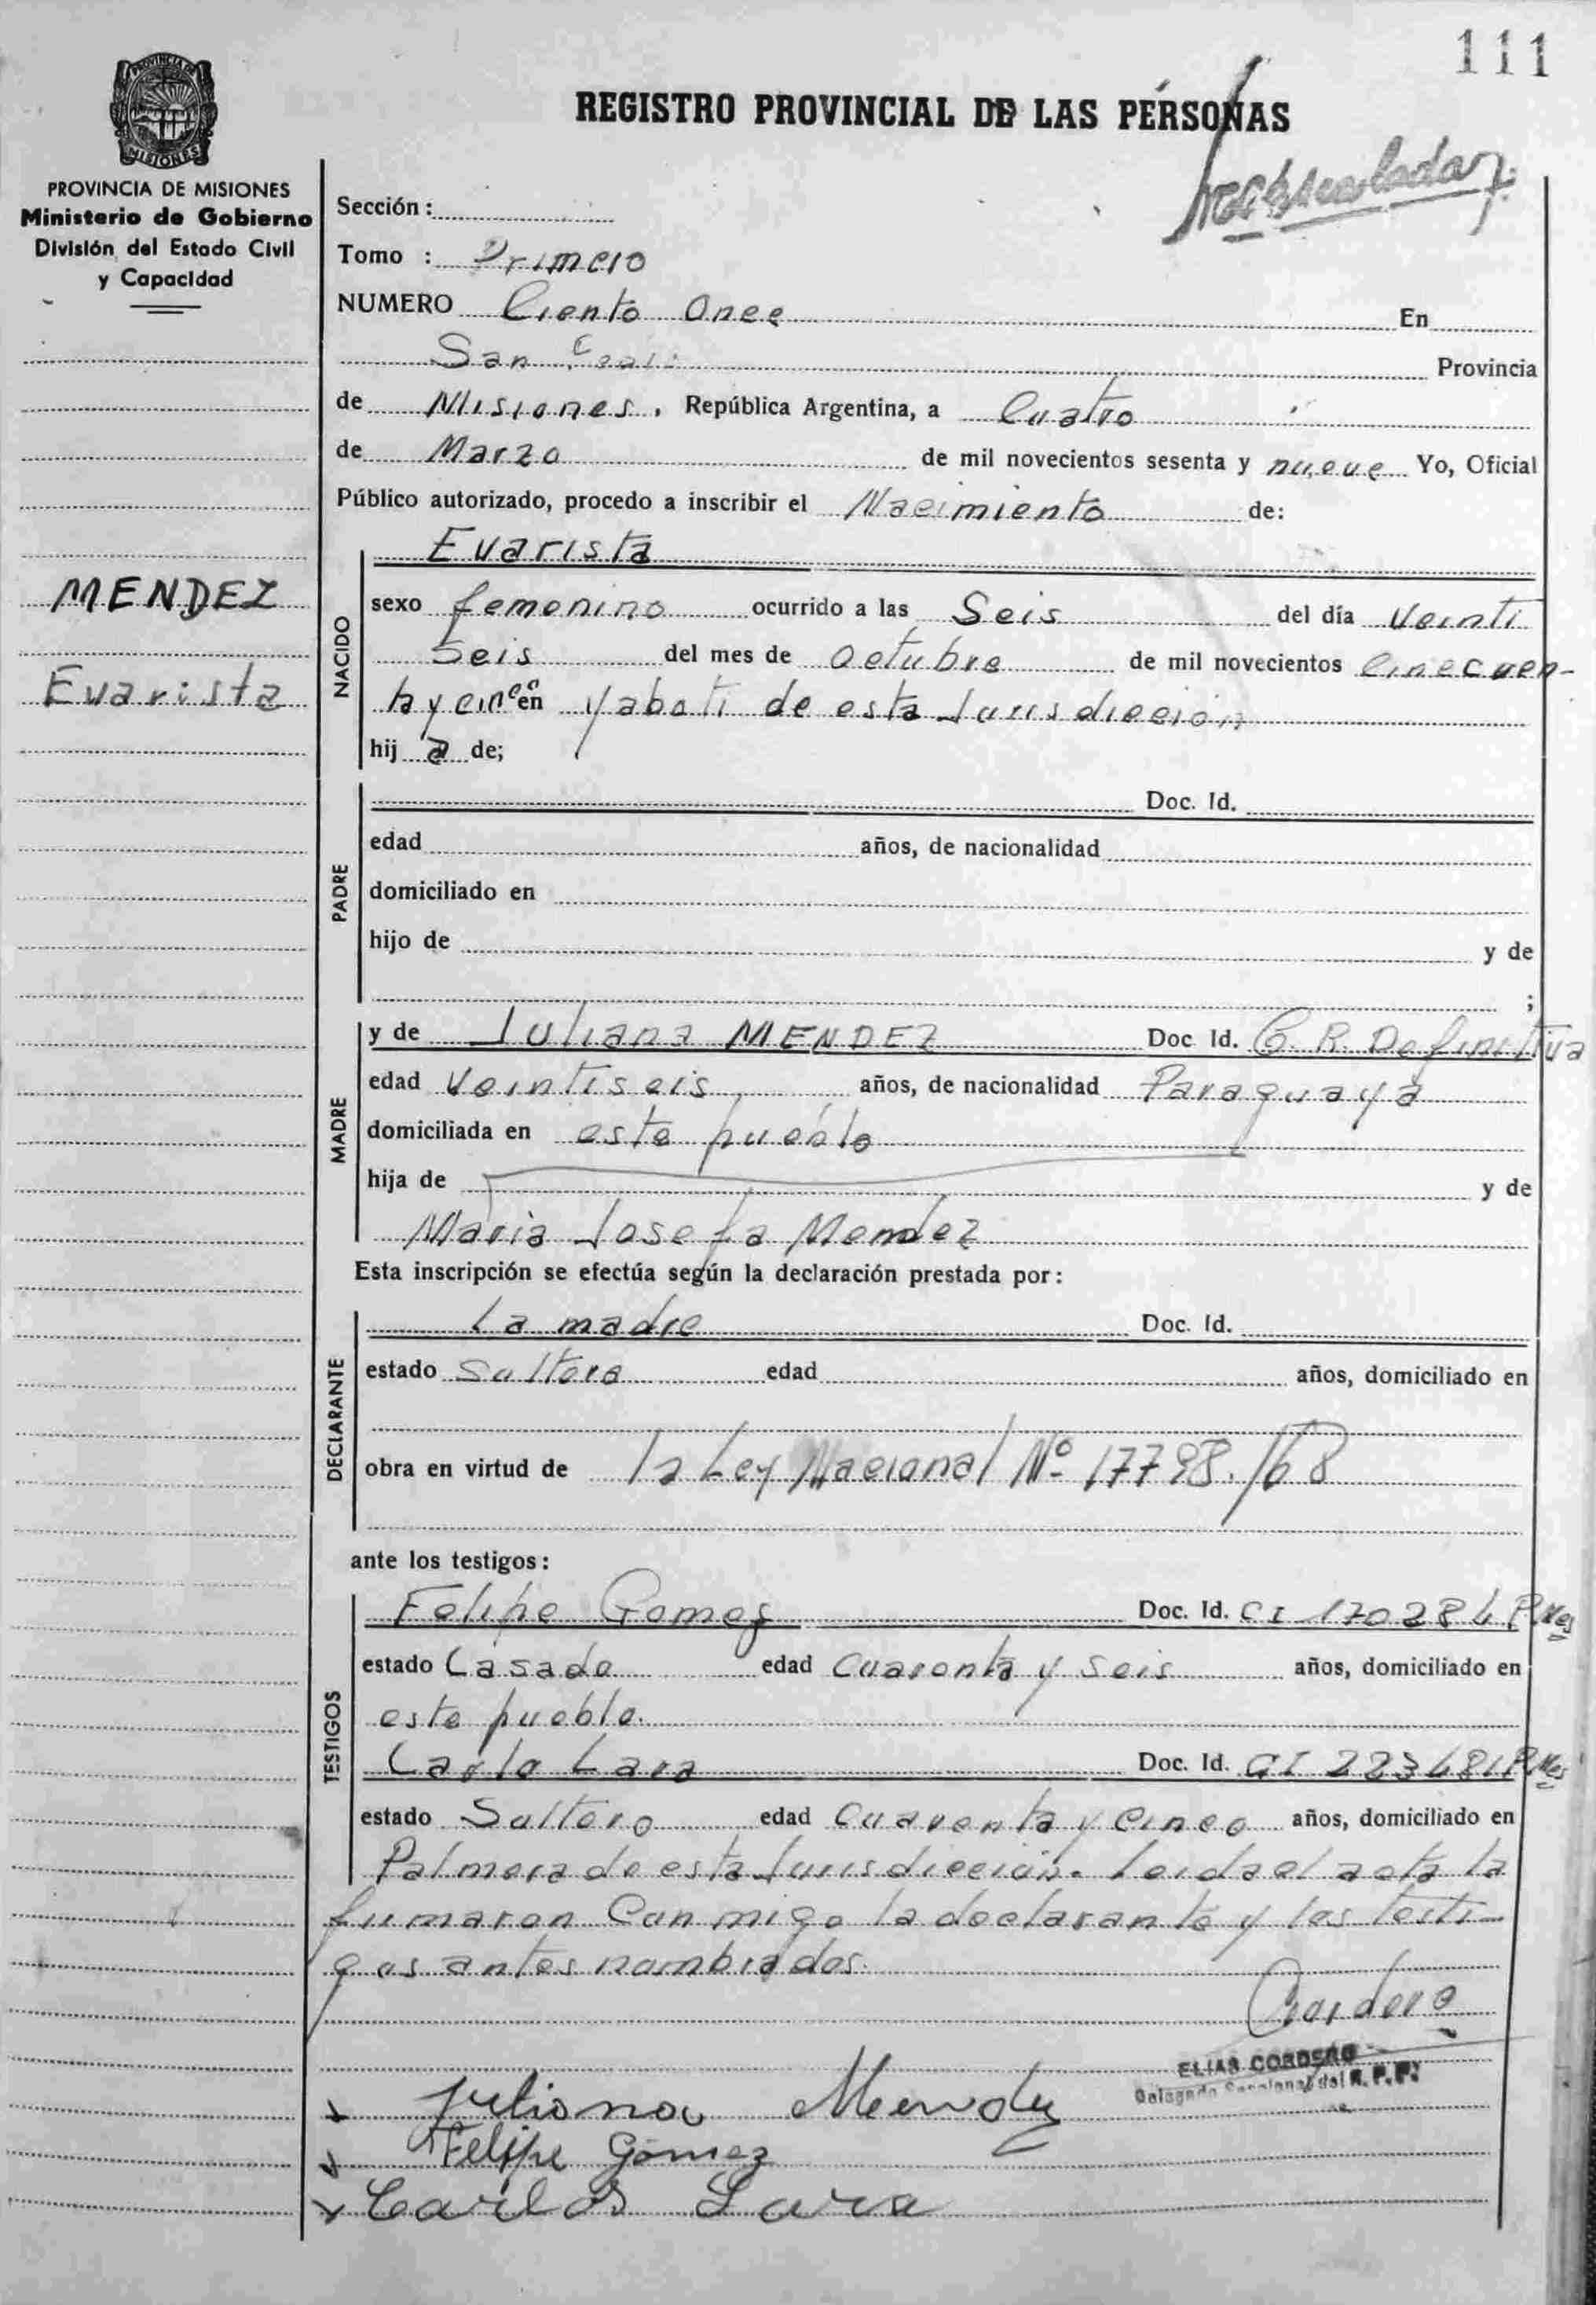 111
PROVINCIA DE MISIONES
REGISTRO PROVINCIAL DE LAS PERSONAS
PROVINCIA DE MISIONES
Ministerio de Gobierno
División del Estado Civil
y Capacidad
Sección :
Tomo : Primero
NUMERO Ciento Once En
San Provincia
de Misiones, República Argentina, a Cuatro
de Marzo de mil novecientos sesenta y nueve Yo, Oficial
Público autorizado, procedo a inscribir el Nacimiento de:
Evarista
MENDEZ
Evarista
NACIDO
sexo femenino ocurrido a las Seis del día Veinti
Seis del mes de Octubre de mil novecientos Cincuen-
ta y cinco en Yaboti de esta Jurisdicción
hij a de;
PADRE
Doc. Id.
edad años, de nacionalidad
domiciliado en
hijo de y de
;
MADRE
y de Juliana MENDEZ Doc. Id. C. R. Definitiva
edad Veintiseis años, de nacionalidad Paraguaya
domiciliada en este pueblo
hija de y de
Maria Josefa Mendez
Esta inscripción se efectúa según la declaración prestada por:
DECLARANTE
La madre Doc. Id.
estado Soltera edad años, domiciliado en
obra en virtud de la Ley Nacional Nº 17798./68
ante los testigos:
TESTIGOS
Felipe Gomez Doc. Id. CI 170284 P. Mes
estado Casado edad Cuarenta y Seis años, domiciliado en
este pueblo.
Carlo Lara Doc. Id. CI 223681 P. Mes
estado Soltero edad Cuarenta y Cinco años, domiciliado en
Palmera de esta Jurisdicción. Leida el acta la
firmaron Conmigo la declarante y los testi-
gos antes nombrados.
Cordero
ELIAS CORDERO
Delegado Seccional del R. P. P.
Juliana Mendez
Felipe Gómez
Carlos Lara